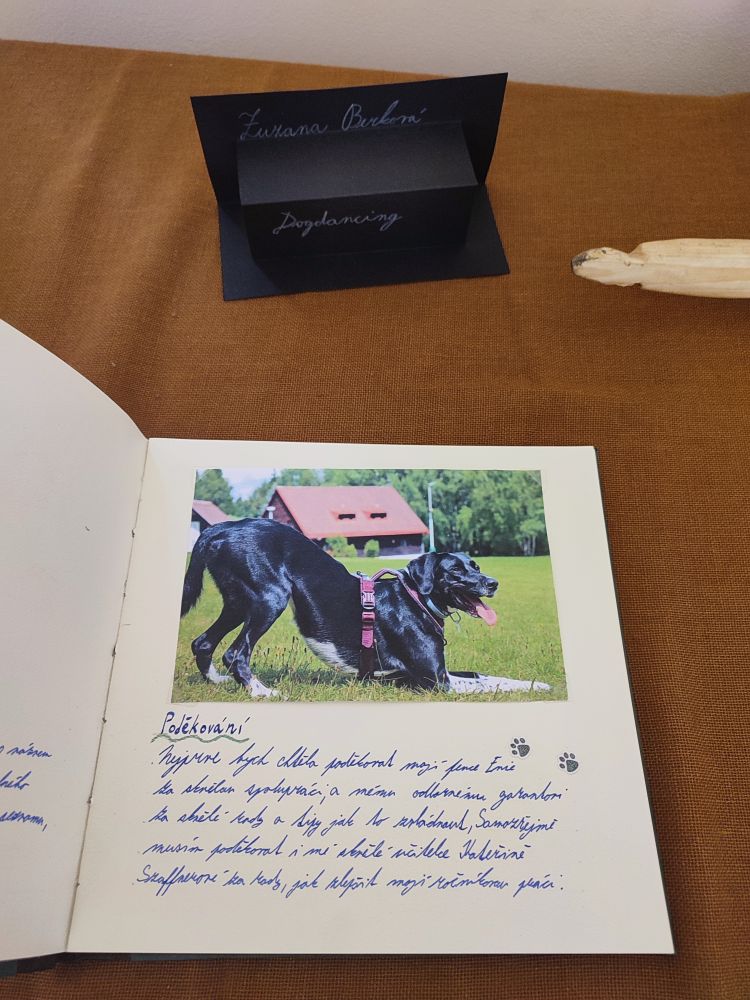 Zuzana Berková
Dogdancing
Poděkování
Nejprve bych chtěla poděkovat mojí fence Enie
za skvělou spolupráci, a mému odbornému garantovi
za skvělé rady a tipy jak to zvládnout, Samozřejmě
musím poděkovat i mé skvělé učitelce Kateřině
Szaffnerové za rady, jak zlepšit moji ročníkovou práci.